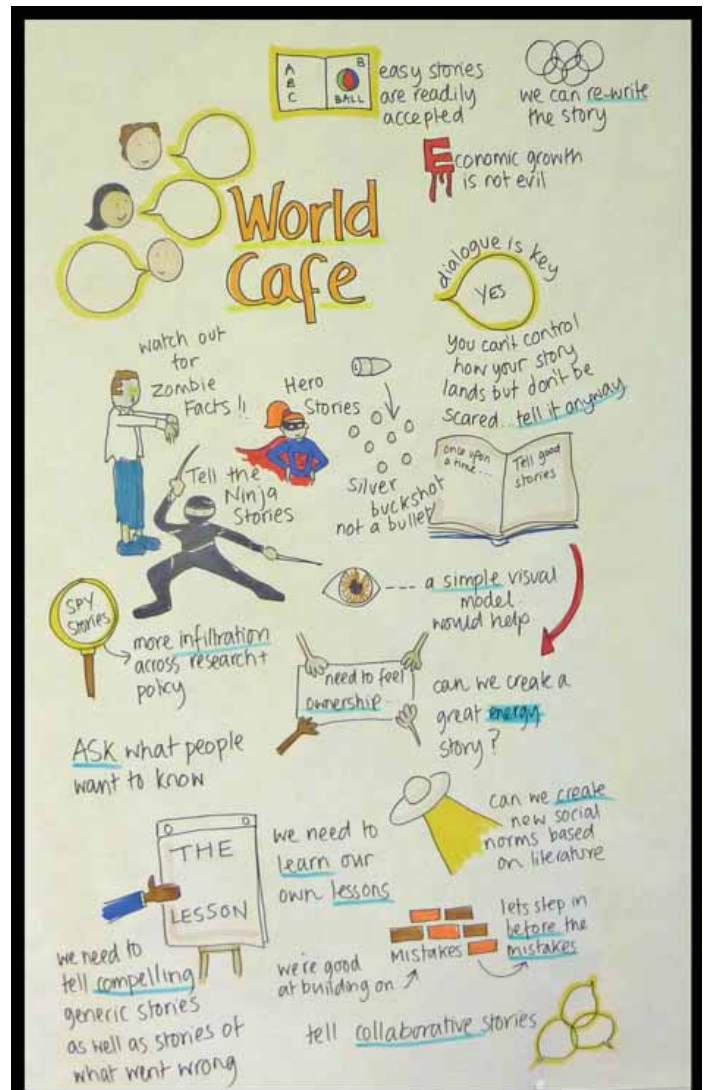 A
B
C
B
BALL
easy stories
are readily
accepted
we can re-write
the story
Economic growth
is not evil
World
Cafe
dialogue is key
YES
You can't control
how your story
lands but don't be
scared... tell it anyway
watch out
for
Zombie
Facts!!
Hero
Stories
Tell the
Ninja
Stories
Silver
buckshot
not a bullet
once upon
a time...
Tell good
stories
SPY
Stories
more infiltration
across research +
policy
a simple visual
model
would help
need to feel
ownership
can we create a
great energy
story?
ASK what people
want to know
can we create
new social
norms based
on literature
THE
LESSON
we need to
learn our
own lessons
we need to
tell compelling
generic stories
as well as stories of
what went wrong
we're good
at building on
MISTAKES
lets step in
before the
mistakes
tell collaborative stories